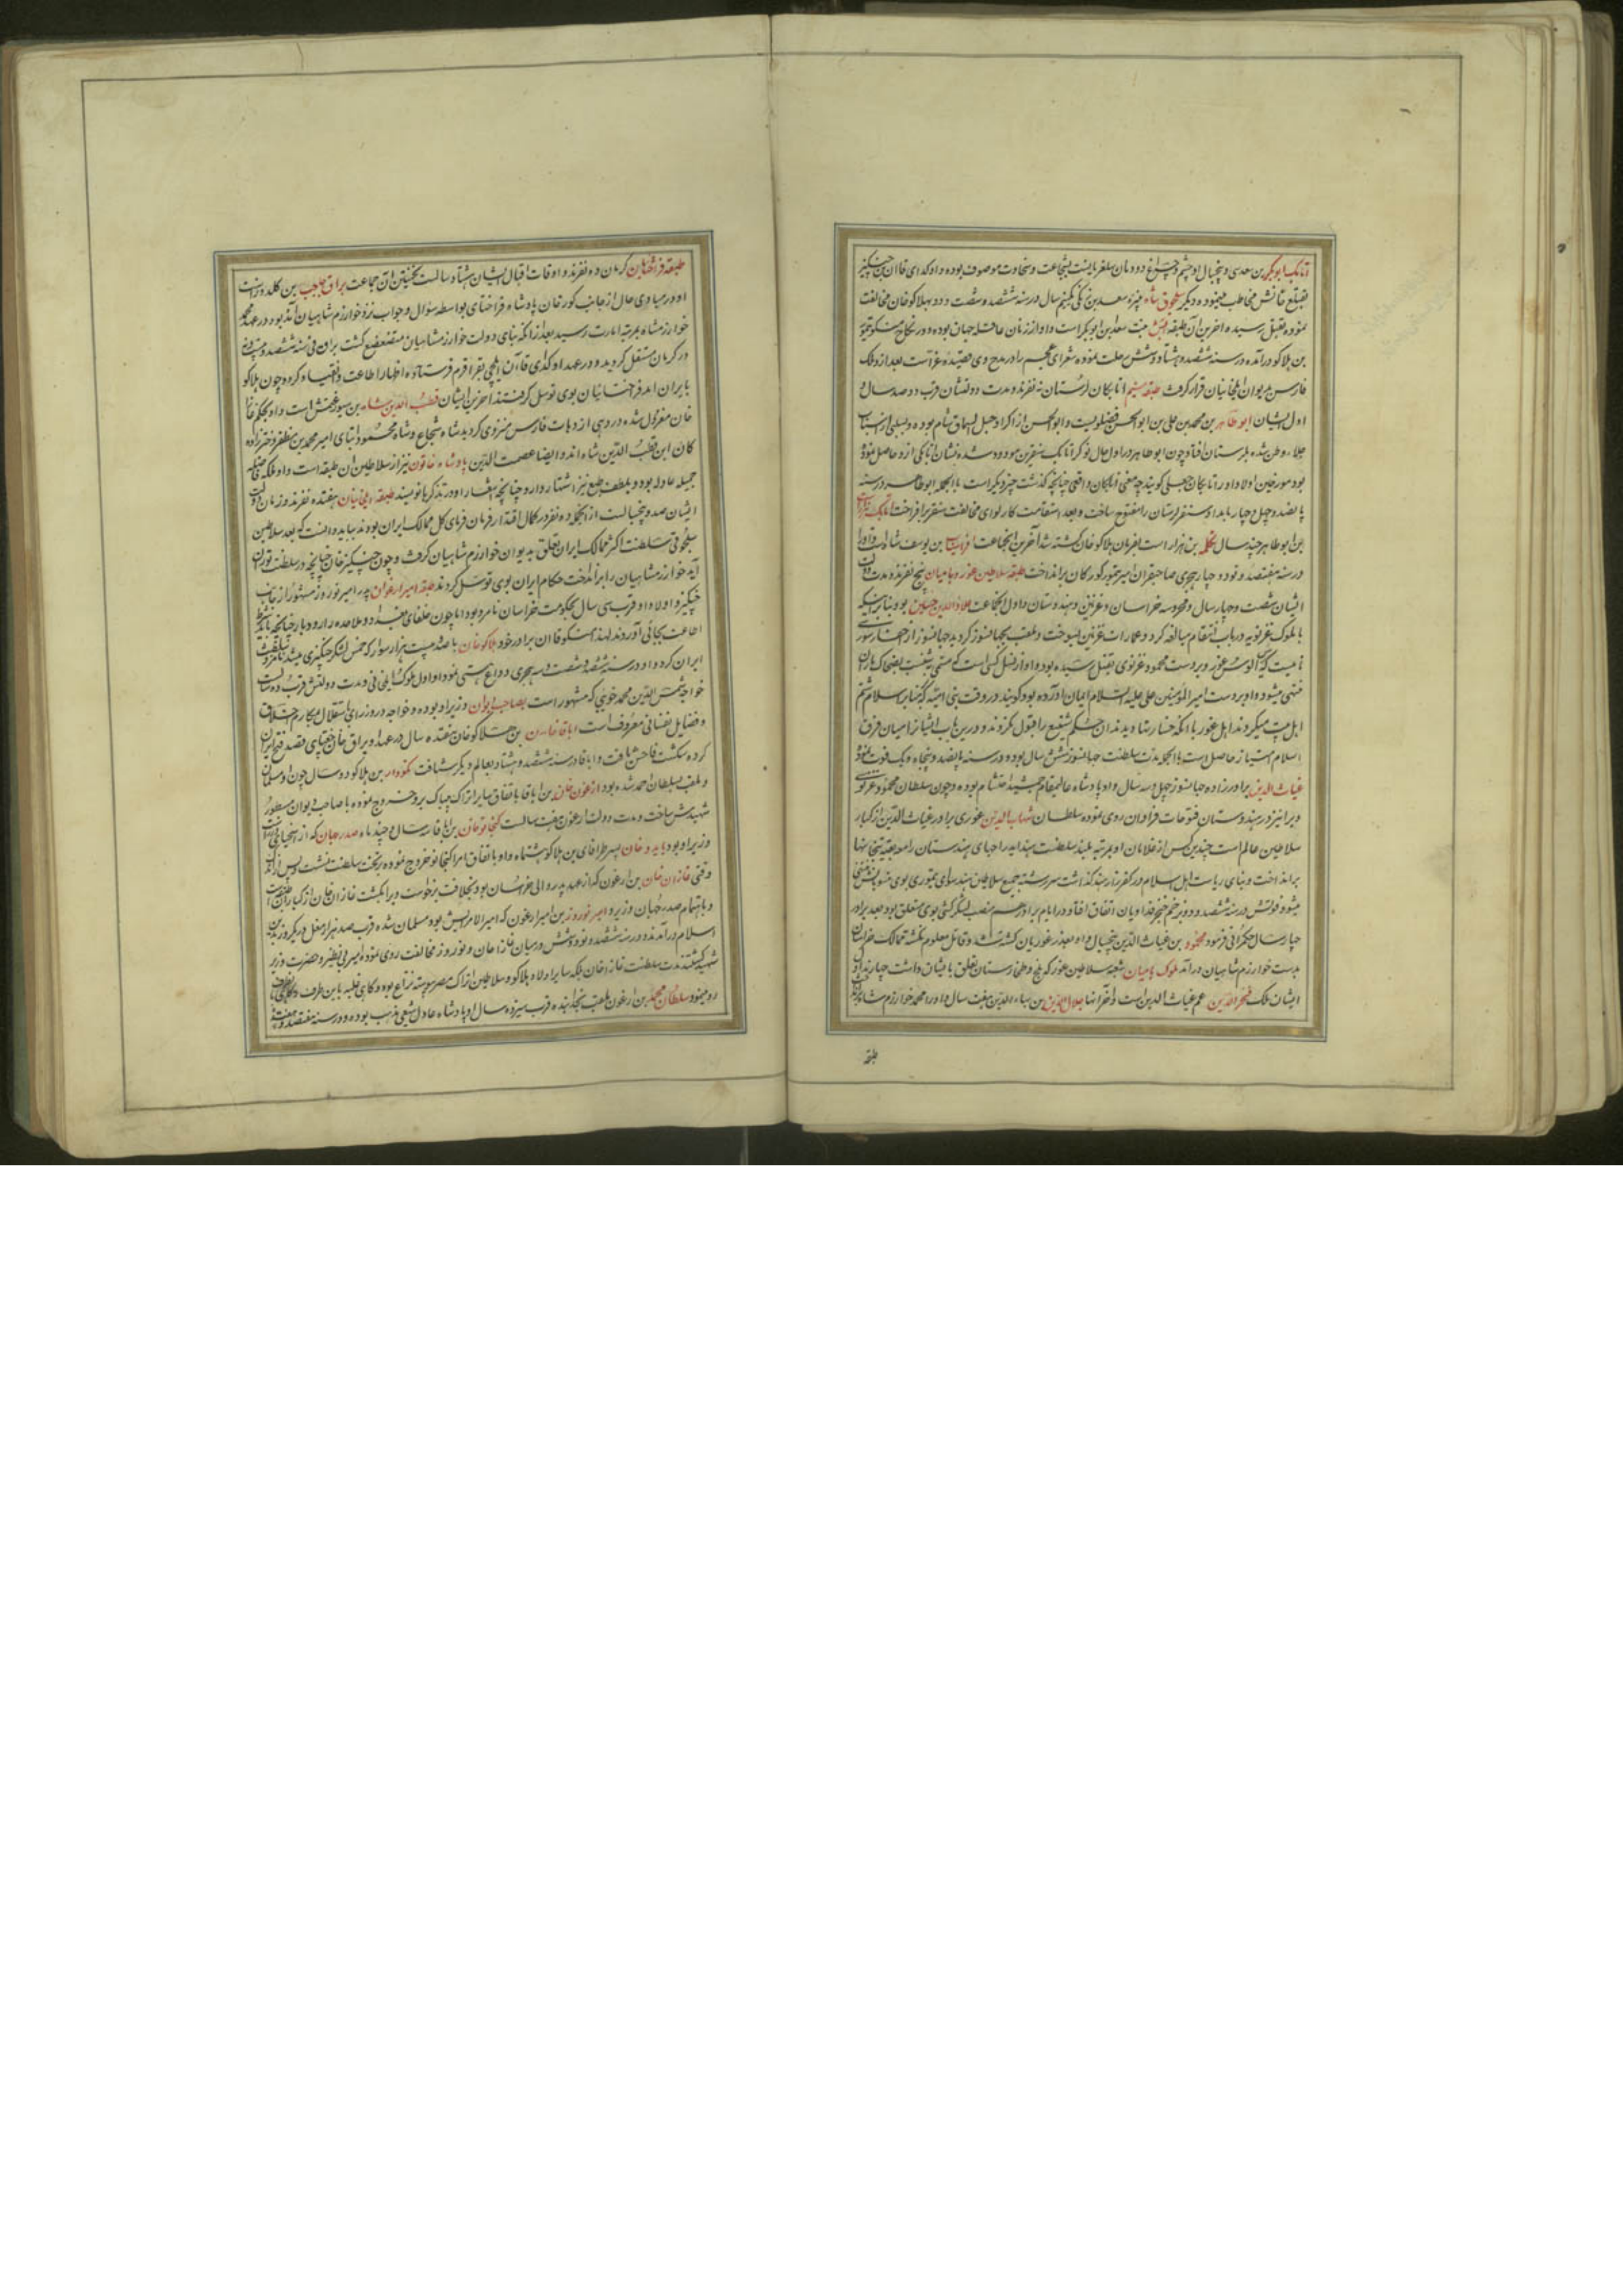 اتابک ابوبکر بن سعدی و پنجسال او چشم و چراغ دودمان سلغریانست بشجاعت و سخاوت موصوف بوده و اوکدای قاآن بن چنگیز
بقتلغ خانش مخاطب مینموده دیگر سلجوق شاه نبیره سعد بن زنگی یکنیم سال در سنه ششصد و شصت و دو بهلاکو خان مخالفت
نموده بقتل رسیده آخرین آن طبقه ابش بنت سعد ابن ابوبکر است و او از زنان عاقله جهان بوده و در نکاح منکو تیمور
بن هلاکو درآمده در سنه ششصد و هشتاد و شش رحلت نموده شعرای عجم را در مدح وی قصیده غراست بعد از او ملک
فارس بدیوان ایلخانیان قرار گرفت طبقه سیم اتابکان لرستان نه نفرند و مدت دولتشان قرب دو صد سال و
اول ایشان ابو طاهر بن محمد بن علی بن ابو الحسن فضلویست و ابو الحسن از اکراد جبل السماق شام بوده و بسببی از اسباب
جلاء وطن شده بلرستان افتاد چون ابو طاهر در اول حال نوکر اتابک سنقر بن مودود شده نشان اتابکی ازو حاصل نموده
بود مورخین اولاد او را اتابکان جعلی گویند چه معنی اتابکان واقعی چنانچه گذشت چیز دیگر است باالجمله ابو طاهر در سنه
پانصد و چهل و چهار بامداد سنقر لرستان را مفتوح ساخت و بعد استقامت کار لوای مخالفت سنقر برافراخت اتابک
ابن ابو طاهر چند سال تکله بن هزار است بفرمان هلاکو خان کشته شد آخرین انجماعت افراسیاب بن یوسف شاه است و او را
در سنه هفتصد و نود و چهار هجری صاحبقران امیر تیمور گورکان برانداخت طبقه سلاطین غور و بامیان پنج نفرند و مدت دولت
ایشان شصت و چهار سال و محروسه خراسان و غزنین و هندوستان و اول انجماعت علاء الدین حسین بود بنا بر اینکه
با ملوک غزنویه در باب انتقام مبالغه کرد و عمارات غزنین بسوخت و ملقب بجهانسوز گردید جهانسوز از احفاد سوری
نامیست که الوس غور و بر دست محمود غزنوی بقتل رسیده بود و او از نسل کسی است که منتهی نسبت بضحاک ماران
منتهی میشود و او بر دست امیر المؤمنین علی علیه السلام ایمان آورده بود گویند در وقت بنی امیه که بمنابر اسلام شتم
اهل بیت میکردند اهل غور با آنکه خسارتها دیدند آن حکم شنیع را قبول نکردند و درین باب ایشانرا میان فرق
اسلام امتیاز حاصل است باالجمله مدت سلطنت جهانسوز شش سال بوده و در سنه پانصد و پنجاه و یک فوت نمود
غیاث الدین برادرزاده جهانسوز چهل و سه سال و او پادشاه عالیمقام جمشید احتشام بوده و چون سلطان محمود غزنوی
ویرا نیز در هندوستان فتوحات فراوان روی نموده سلطان شهاب الدین غوری برادر غیاث الدین از کبار
سلاطین عالم است چندین کس از غلامان او بمرتبه بلند سلطنت هند
برانداخت و بنای ریاست اهل اسلام در کفرزار هند گذاشت سررشته جمیع سلاطین هند سوای تیموری بوی منسوبش منتهی
میشود فوتش در سنه ششصد و دو بزخم خنجر فداویان اتفاق افتاد و در ایام برادر هم منصب لشکرکشی بوی متعلق بود بعد برادر
چهار سال حکمرانی فرمود محمود بن غیاث الدین پنجسال و او بغدر غوریان کشته شد و قاتل معلوم نگشته ممالک خراسان
بدست خوارزم شاهیان درآمد ملوک بامیان شعبه سلاطین غور که بلخ و طخارستان تعلق بایشان داشت چهارند اول
ایشان ملک فخر الدین عم غیاث الدین است و آخر آنها جلال الدین بن بهاء الدین هفت سال و او را محمد خوارزم شاه برانداخت
طبقه
طبقه قراختائیان کرمان ده نفرند و اوقات اقبال ایشان هشتاد سالست نخستین آن جماعت براق حاجب بن کلدوز است
او در مبادی حال از جانب گور خان پادشاه قراختای بواسطه سؤال و جواب نزد خوارزم شاهیان آمد بود در عهد محمد
خوارزمشاه بمرتبه امارت رسید بعد از آنکه بنای دولت خوارزمشاهیان متضعضع گشت براق فی سنه ششصد و
در کرمان مستقل گردید و در عهد اوکدای قاآن ایلچی بقراقرم فرستاده اظهار اطاعت و انقیاد کرد و چون هلاکو
بایران آمد قراختائیان بوی توسل گرفتند آخرین ایشان قطب الدین شاه بن سیورغتمش است و او بحکم غازان
خان معزول شده در دهی از دهات فارس منزوی گردید شاه شجاع و شاه محمود ابنای امیر محمد بن مظفر دخترزاده
کان این قطب الدین شاه اند و ایضا عصمت الدین پادشاه خاتون نیز از سلاطین ان طبقه است و او ملکه
جمیله عادله بود و بلطف طبع نیز اشتهار دارد چنانچه اشعار او در تذکرها نویسند طبقه ایلخانیان هفتده نفرند و زمان دولت
ایشان صد و پنجسالست از آنجمله ده نفر در کمال اقتدار فرمان فرمای کل ممالک ایران بودند بباید دانست که بعد سلاطین
سلجوقی سلطنت اکثر ممالک ایران تعلق بدیوان خوارزم شاهیان گرفت و چون چنگیز خان چنانچه در سلطنت توران
آید خوارزمشاهیان را برانداخت حکام ایران بوی توسل کردند طبقه امیر ارغون پدر امیر نوروز مشهور از جانب
چنگیز و اولاد او قرب سی سال بحکومت خراسان نامزد بود اما چون خلفای بغداد و ملاحده رارودبار چنانچه باید شرط
اطاعت بجا نمی آوردند لهذا منگو قاآن برادر خود هلاکو خان با صد و بیست هزار سوار که خمس لشکر چنگیزی میشد نامزد
ایران کرد و او در سنه ششصد و شصت و سه هجری وداع هستی نمود او اول ملوک ایلخانی و مدت دولتش قرب ده سالست
خواجه شمس الدین محمد جوینی که مشهور است بصاحب دیوان وزیر او بوده و خواجه در وزرای استقلال بمکارم اخلاق
و فضایل نفسانی معروف است اباقا خان بن هلاکو خان هفده سال در عهد او براق خان جغتای قصد فتح ایران
کرده شکست فاحش یافت و اباقا در سنه ششصد و هشتاد بعالم دیگر شتافت نکودار بن هلاکو دو سال چون او مسلمان
و ملقب بسلطان احمد شده بود ارغون خان بن اباقا باتفاق سایر اتراک بیباک برو خروج نموده با صاحب دیوان مسطور
شهیدش ساخت و مدت دولت ارغون هفت سالست کنجاتو خان بن اباقا سه سال و چند ماه صدر جهان که از
وزیر او بود بایدو خان پسر طراغای بن هلاکو هشتماه و او باتفاق امرا کنجاتو خروج نموده بر تخت سلطنت نشست پس از اندک
وقتی غازان خان بن ارغون که از عهد پدر والی خراسان بود بخلافت برخواست ویرا بکشت غازان خان از کبار این طبقه است
و باهتمام صدر جهان وزیر و امیر نوروز بن امیر ارغون که امیر الامرایش بود مسلمان شده قرب صد هزار مغل در یکروز بدین
اسلام درآمدند و در سنه ششصد و نود و شش در میان غازان خان و نوروز مخالفت روی نمود امیر بی نظیر و حضرت وزیر
شهید گشتند مدت سلطنت غازان خان بلکه سایر اولاد هلاکو و سلاطین اتراک مصر پیوسته نزاع بود و گاهی غلبه باین طرف و گاهی بآنطرف
رو مینمود سلطان محمد بن ارغون ملقب بخدابنده قرب سیزده سال او پادشاه عادل شیعی مذهب بوده و در سنه هفتصد و